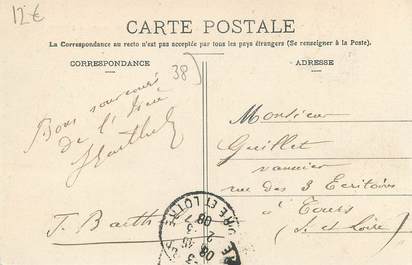 12€
CARTE POSTALE
La Correspondance au recto n'est pas acceptée par tous les pays étrangers (Se renseigner à la Poste).
CORRESPONDANCE
ADRESSE
38
Bons souvenirs
de l'
J. Barth
Monsieur
Guillet
vannier
rue des 3 Ecritoires
à Tours
(I. et Loire)
RE ET LOIR